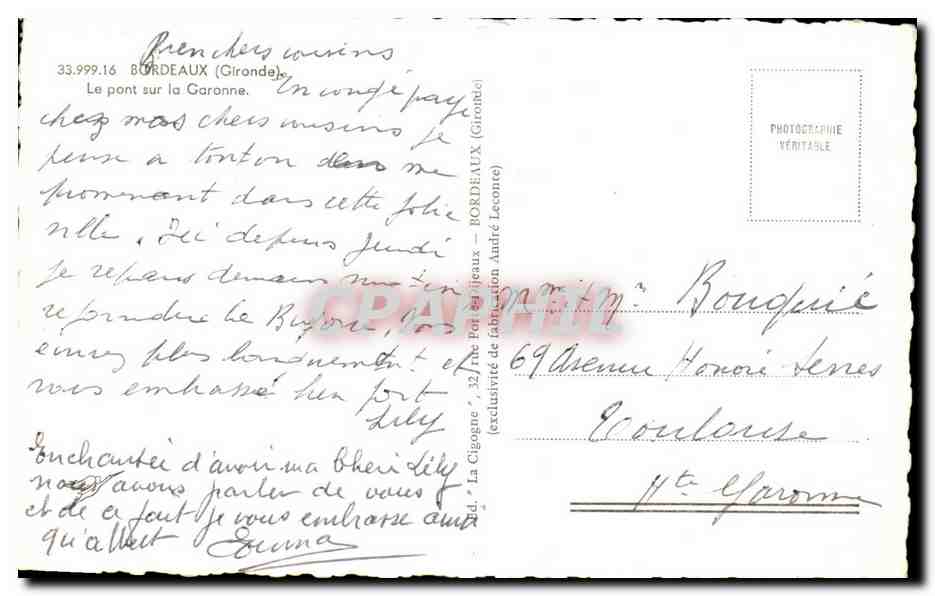 Bien chers cousins
33.999.16 BORDEAUX (Gironde).
Le pont sur la Garonne.
En congé paye
chez mes chers cousins je
pense a tonton me
promenant dans cette jolie
ville. Ici depuis jeudi
je repars demain matin
reprendre le
plus longuement et
vous embrasse bien fort
Lily
Enchantée d'avoir ma chère Lily
nous avons parler de vous
et de ce fait je vous embrasse ainsi
qu'albert Emma
Éd. "La Cigogne", 32, rue Porte-Dijeaux — BORDEAUX (Gironde)
(exclusivité de fabrication André Leconte)
PHOTOGRAPHIE
VÉRITABLE
CPAPHIL
Mme et Mr Bouquié
69 Avenue Honoré Serres
Toulouse
Hte Garonne